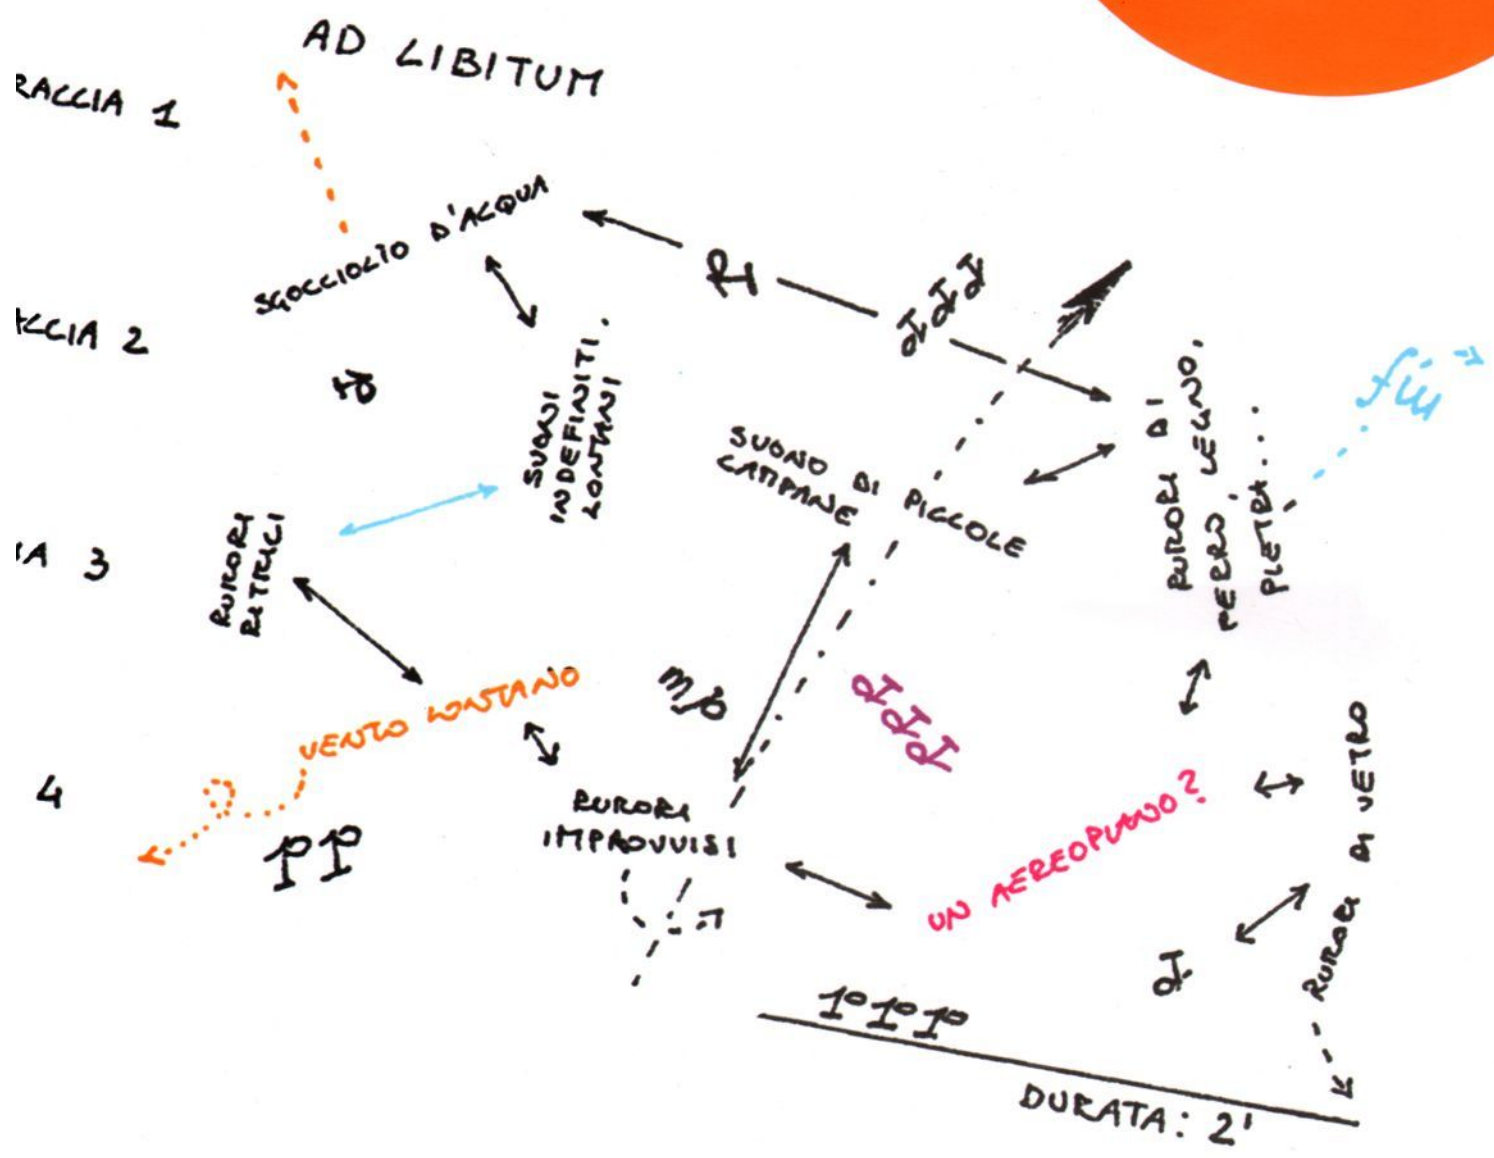 AD LIBITUM
RACCIA 1
SGOCCIOLIO D'ACQUA
CCIA 2
SUONI
INDEFINITI.
LONTANI
SUONO DI PICCOLE
CAMPANE
RUMORI DI
FERRO, LEGNO,
PIETRA....
fiii
IA 3
RUMORI
RITMICI
VENTO LONTANO
mp
4
PP
RUMORI
IMPROVVISI
UN AEREOPLANO?
RUMORI DI VETRO
PPP
DURATA: 2'